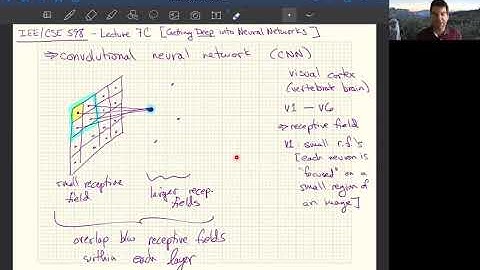 IEE/CSE 598 - Lecture 7C [Getting Deep into Neural Networks]
⇒ convolutional neural network (CNN)
visual cortex
(vertebrate brain)
V1 — V6
⇒ receptive field
V1: small r.f.'s
[each neuron is
"focused" on a
small region of
an image]
small receptive
field
larger recep-
fields
overlap b/w receptive fields
within each layer